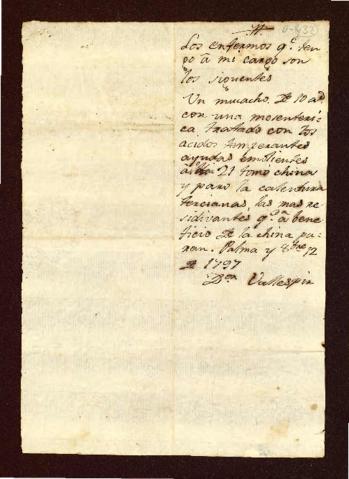 Los enfermos q.e ten
go â mi cargo son
los siguentes
Un muchacho, de 10 añ
con una mesenteri
ca, tratado con los
acidos temperantes
ayudas emolientes
21 tomó china
y paró la calentura
Tercianas, las mas re
sidivantes q.e â bene
ficio de la china pa
ran. Palma y 8.bre 12
de 1797
D.or Vallespir